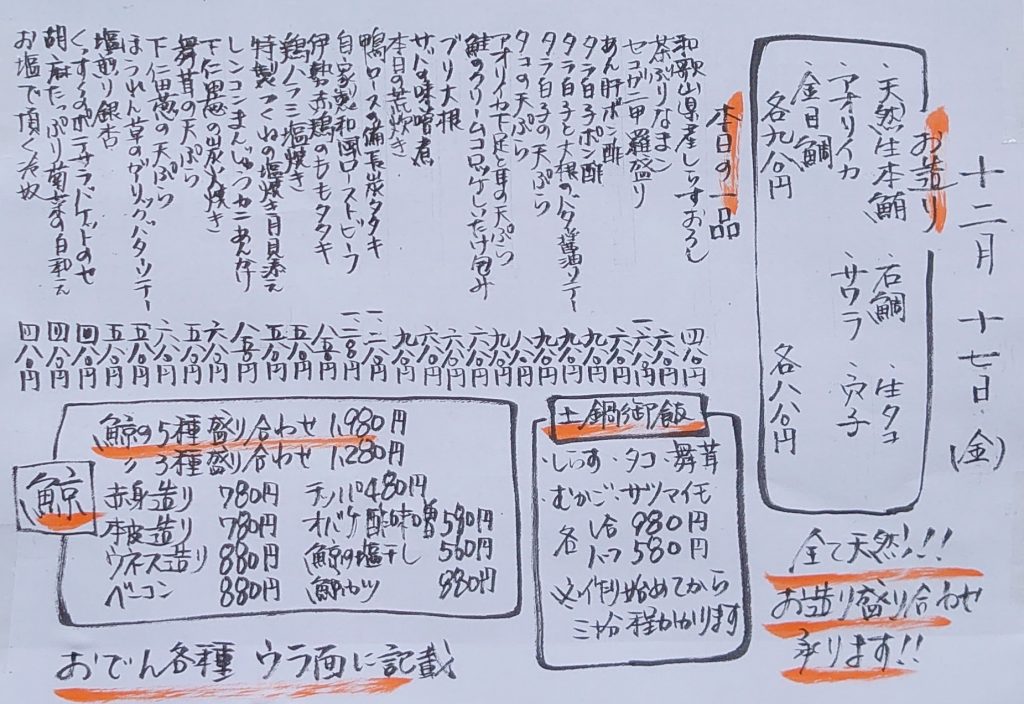 十二月十七日(金)
お造り
・天然生本鮪 ・石鯛 ・生タコ
・アオリイカ ・サワラ ・穴子
・金目鯛
各九八〇円 各八八〇円
全て天然!!!
お造り盛り合わせ
承ります!!
本日の一品
和歌山県産しらすおろし 四八〇円
茶ぶりなまこ 六八〇円
セコガニ甲羅盛り
あん肝ポン酢 六八〇円
タラ白子ポン酢 九八〇円
タラ白子と大根のバター醤油ソテー 九八〇円
タラ白子の天ぷら 九八〇円
タコの天ぷら 八八〇円
アオリイカ下足と耳の天ぷら
鮭のクリームコロッケしいたけ包み
ブリ大根
サバの味噌煮
本日の荒炊き
鴨ロースの備長炭タタキ
自家製和風ローストビーフ
伊勢赤鶏のももタタキ
鶏ハラミ塩焼き
特製つくねの塩焼き月見添え
レンコンまんじゅうカニあんかけ
下仁田葱の炭火焼き
舞茸の天ぷら
下仁田葱の天ぷら
ほうれん草のガリックバターソテー
くんすくのポテサラバケットのせ
塩煎り銀杏 四八〇円
胡麻たっぷり菊菜の白和え 四八〇円
お塩で頂く冷奴 四八〇円
土鍋御飯
・しらす・タコ・舞茸
・むかご・サツマイモ
各 1合 980円
ハーフ 580円
※作り始めてから
三十分程かかります
鯨
鯨の5種盛り合わせ 1,980円
〃 3種盛り合わせ 1,280円
赤身造り 780円 チンパ 480円
本皮造り 780円 オバケ酢味噌 580円
ウネス造り 880円 鯨の塩干し 580円
ベーコン 880円 鯨カツ 880円
おでん各種 ウラ面に記載